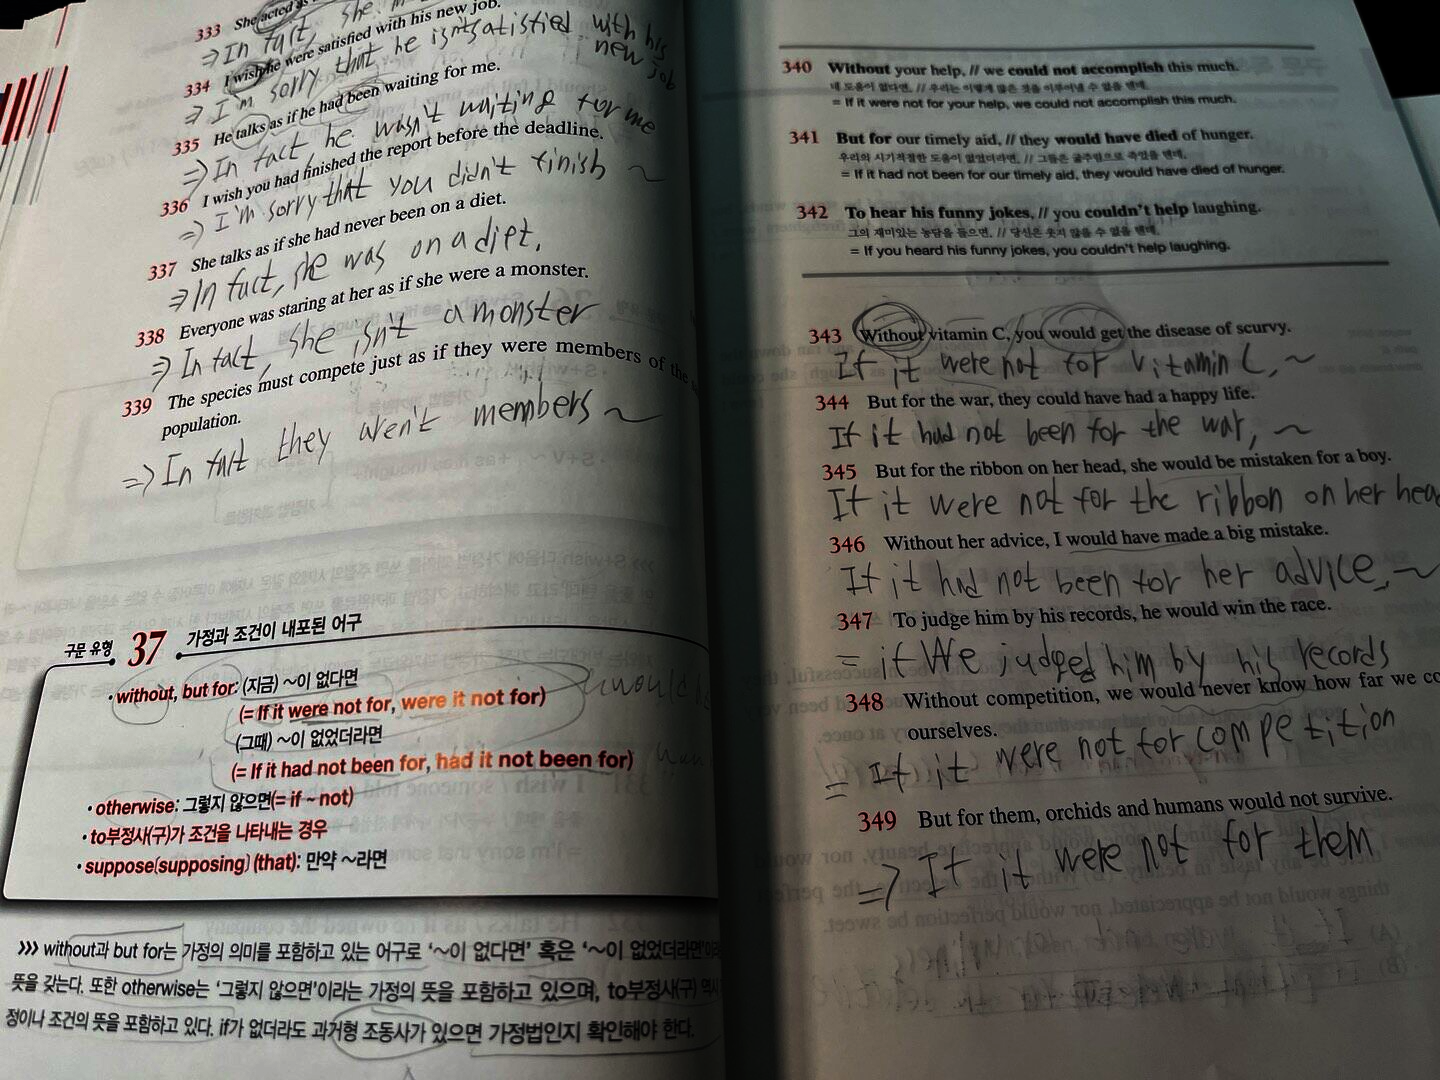 333 She acted as
⇒ In fact, she
334 I wish he were satisfied with his new job.
⇒ I'm sorry that he isn't satisfied with his new job
335 He talks as if he had been waiting for me.
⇒ In fact he wasn't waiting for me
336 I wish you had finished the report before the deadline.
⇒ I'm sorry that you didn't finish ~
337 She talks as if she had never been on a diet.
⇒ In fact, she was on a diet.
338 Everyone was staring at her as if she were a monster.
⇒ In fact, she isn't a monster
339 The species must compete just as if they were members of the
population.
⇒ In fact they aren't members ~
구문 유형 37 가정과 조건이 내포된 어구
· without, but for: (지금) ~이 없다면
(= If it were not for, were it not for)
(그때) ~이 없었더라면
(= If it had not been for, had it not been for)
· otherwise: 그렇지 않으면(= if ~ not)
· to부정사(구)가 조건을 나타내는 경우
· suppose(supposing) (that): 만약 ~라면
>>> without과 but for는 가정의 의미를 포함하고 있는 어구로 ‘~이 없다면’ 혹은 ‘~이 없었더라면’
뜻을 갖는다. 또한 otherwise는 ‘그렇지 않으면’이라는 가정의 뜻을 포함하고 있으며, to부정사(구) 역시
정이나 조건의 뜻을 포함하고 있다. if가 없더라도 과거형 조동사가 있으면 가정법인지 확인해야 한다.
340 Without your help, // we could not accomplish this much.
네 도움이 없다면, // 우리는 이렇게 많은 것을 이루어낼 수 없을 텐데.
= If it were not for your help, we could not accomplish this much.
341 But for our timely aid, // they would have died of hunger.
우리의 시기적절한 도움이 없었더라면, // 그들은 굶주림으로 죽었을 텐데.
= If it had not been for our timely aid, they would have died of hunger.
342 To hear his funny jokes, // you couldn't help laughing.
그의 재미있는 농담을 들으면, // 당신은 웃지 않을 수 없을 텐데.
= If you heard his funny jokes, you couldn't help laughing.
343 Without vitamin C, you would get the disease of scurvy.
If it were not for vitamin C, ~
344 But for the war, they could have had a happy life.
If it had not been for the war, ~
345 But for the ribbon on her head, she would be mistaken for a boy.
If it were not for the ribbon on her hea
346 Without her advice, I would have made a big mistake.
If it had not been for her advice, ~
347 To judge him by his records, he would win the race.
= if We judged him by his records
348 Without competition, we would never know how far we co
ourselves.
= If it were not for competition
349 But for them, orchids and humans would not survive.
⇒ If it were not for them